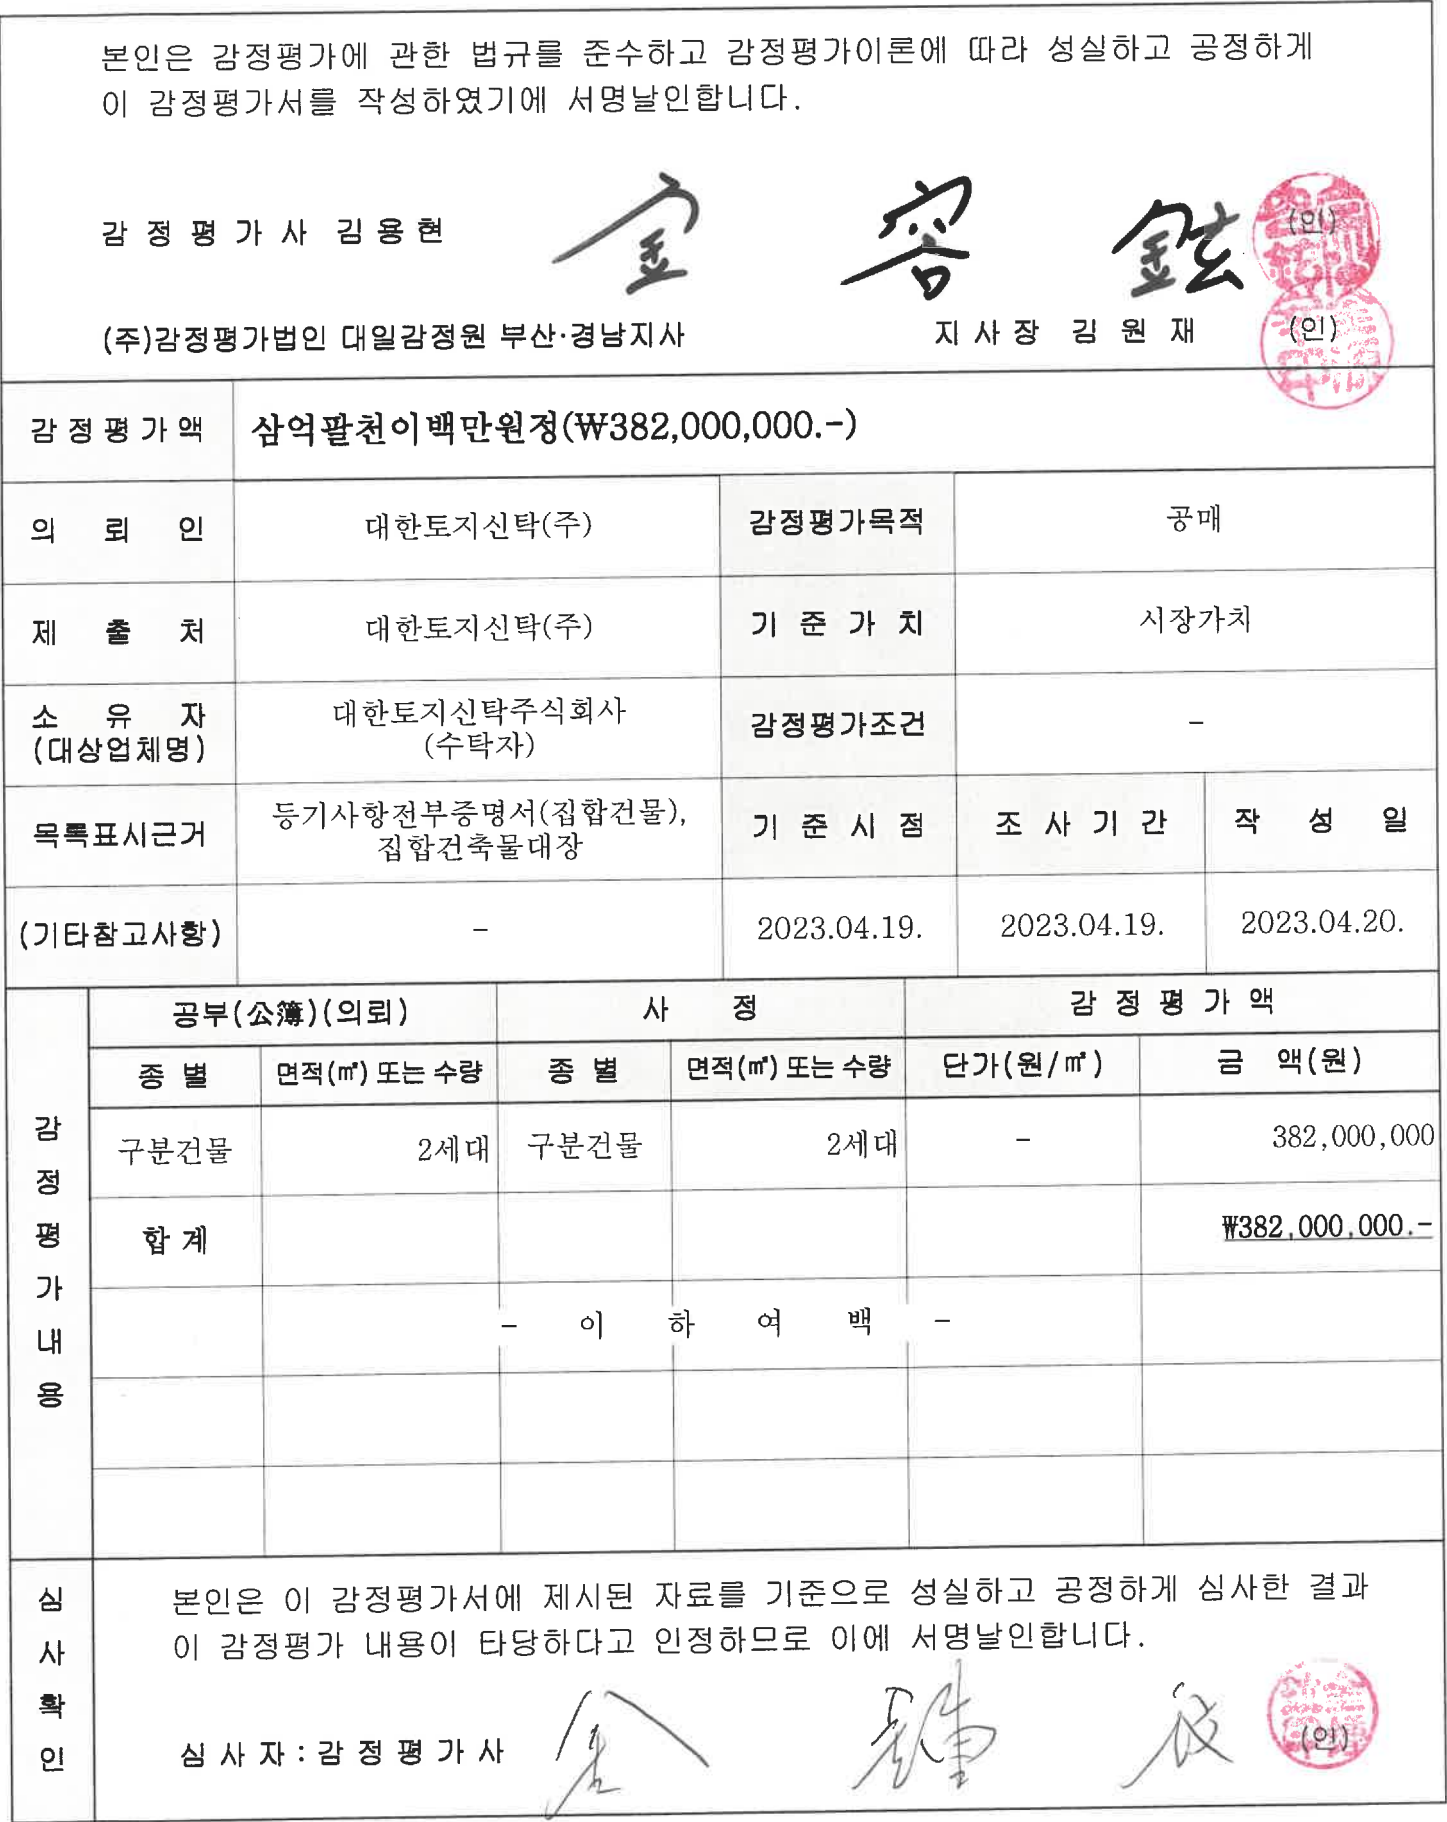 본인은 감정평가에 관한 법규를 준수하고 감정평가이론에 따라 성실하고 공정하게
이 감정평가서를 작성하였기에 서명날인합니다.
감 정 평 가 사 김 용 현 金 容 鉉 (인)
(주)감정평가법인 대일감정원 부산·경남지사 지 사 장 김 원 재 (인)
감 정 평 가 액 삼억팔천이백만원정(₩382,000,000.-)
의 뢰 인 대한토지신탁(주) 감정평가목적 공매
제 출 처 대한토지신탁(주) 기 준 가 치 시장가치
소 유 자 대한토지신탁주식회사 감정평가조건 -
(대상업체명) (수탁자)
목록표시근거 등기사항전부증명서(집합건물), 기 준 시 점 조 사 기 간 작 성 일
집합건축물대장
(기타참고사항) - 2023.04.19. 2023.04.19. 2023.04.20.
감정평가내용
공부(公簿)(의뢰) 사 정 감 정 평 가 액
종 별 면적(㎡) 또는 수량 종 별 면적(㎡) 또는 수량 단가(원/㎡) 금 액(원)
구분건물 2세대 구분건물 2세대 - 382,000,000
합 계 ₩382,000,000.-
- 이 하 여 백 -
심사확인
본인은 이 감정평가서에 제시된 자료를 기준으로 성실하고 공정하게 심사한 결과
이 감정평가 내용이 타당하다고 인정하므로 이에 서명날인합니다.
심 사 자 : 감 정 평 가 사 (인)